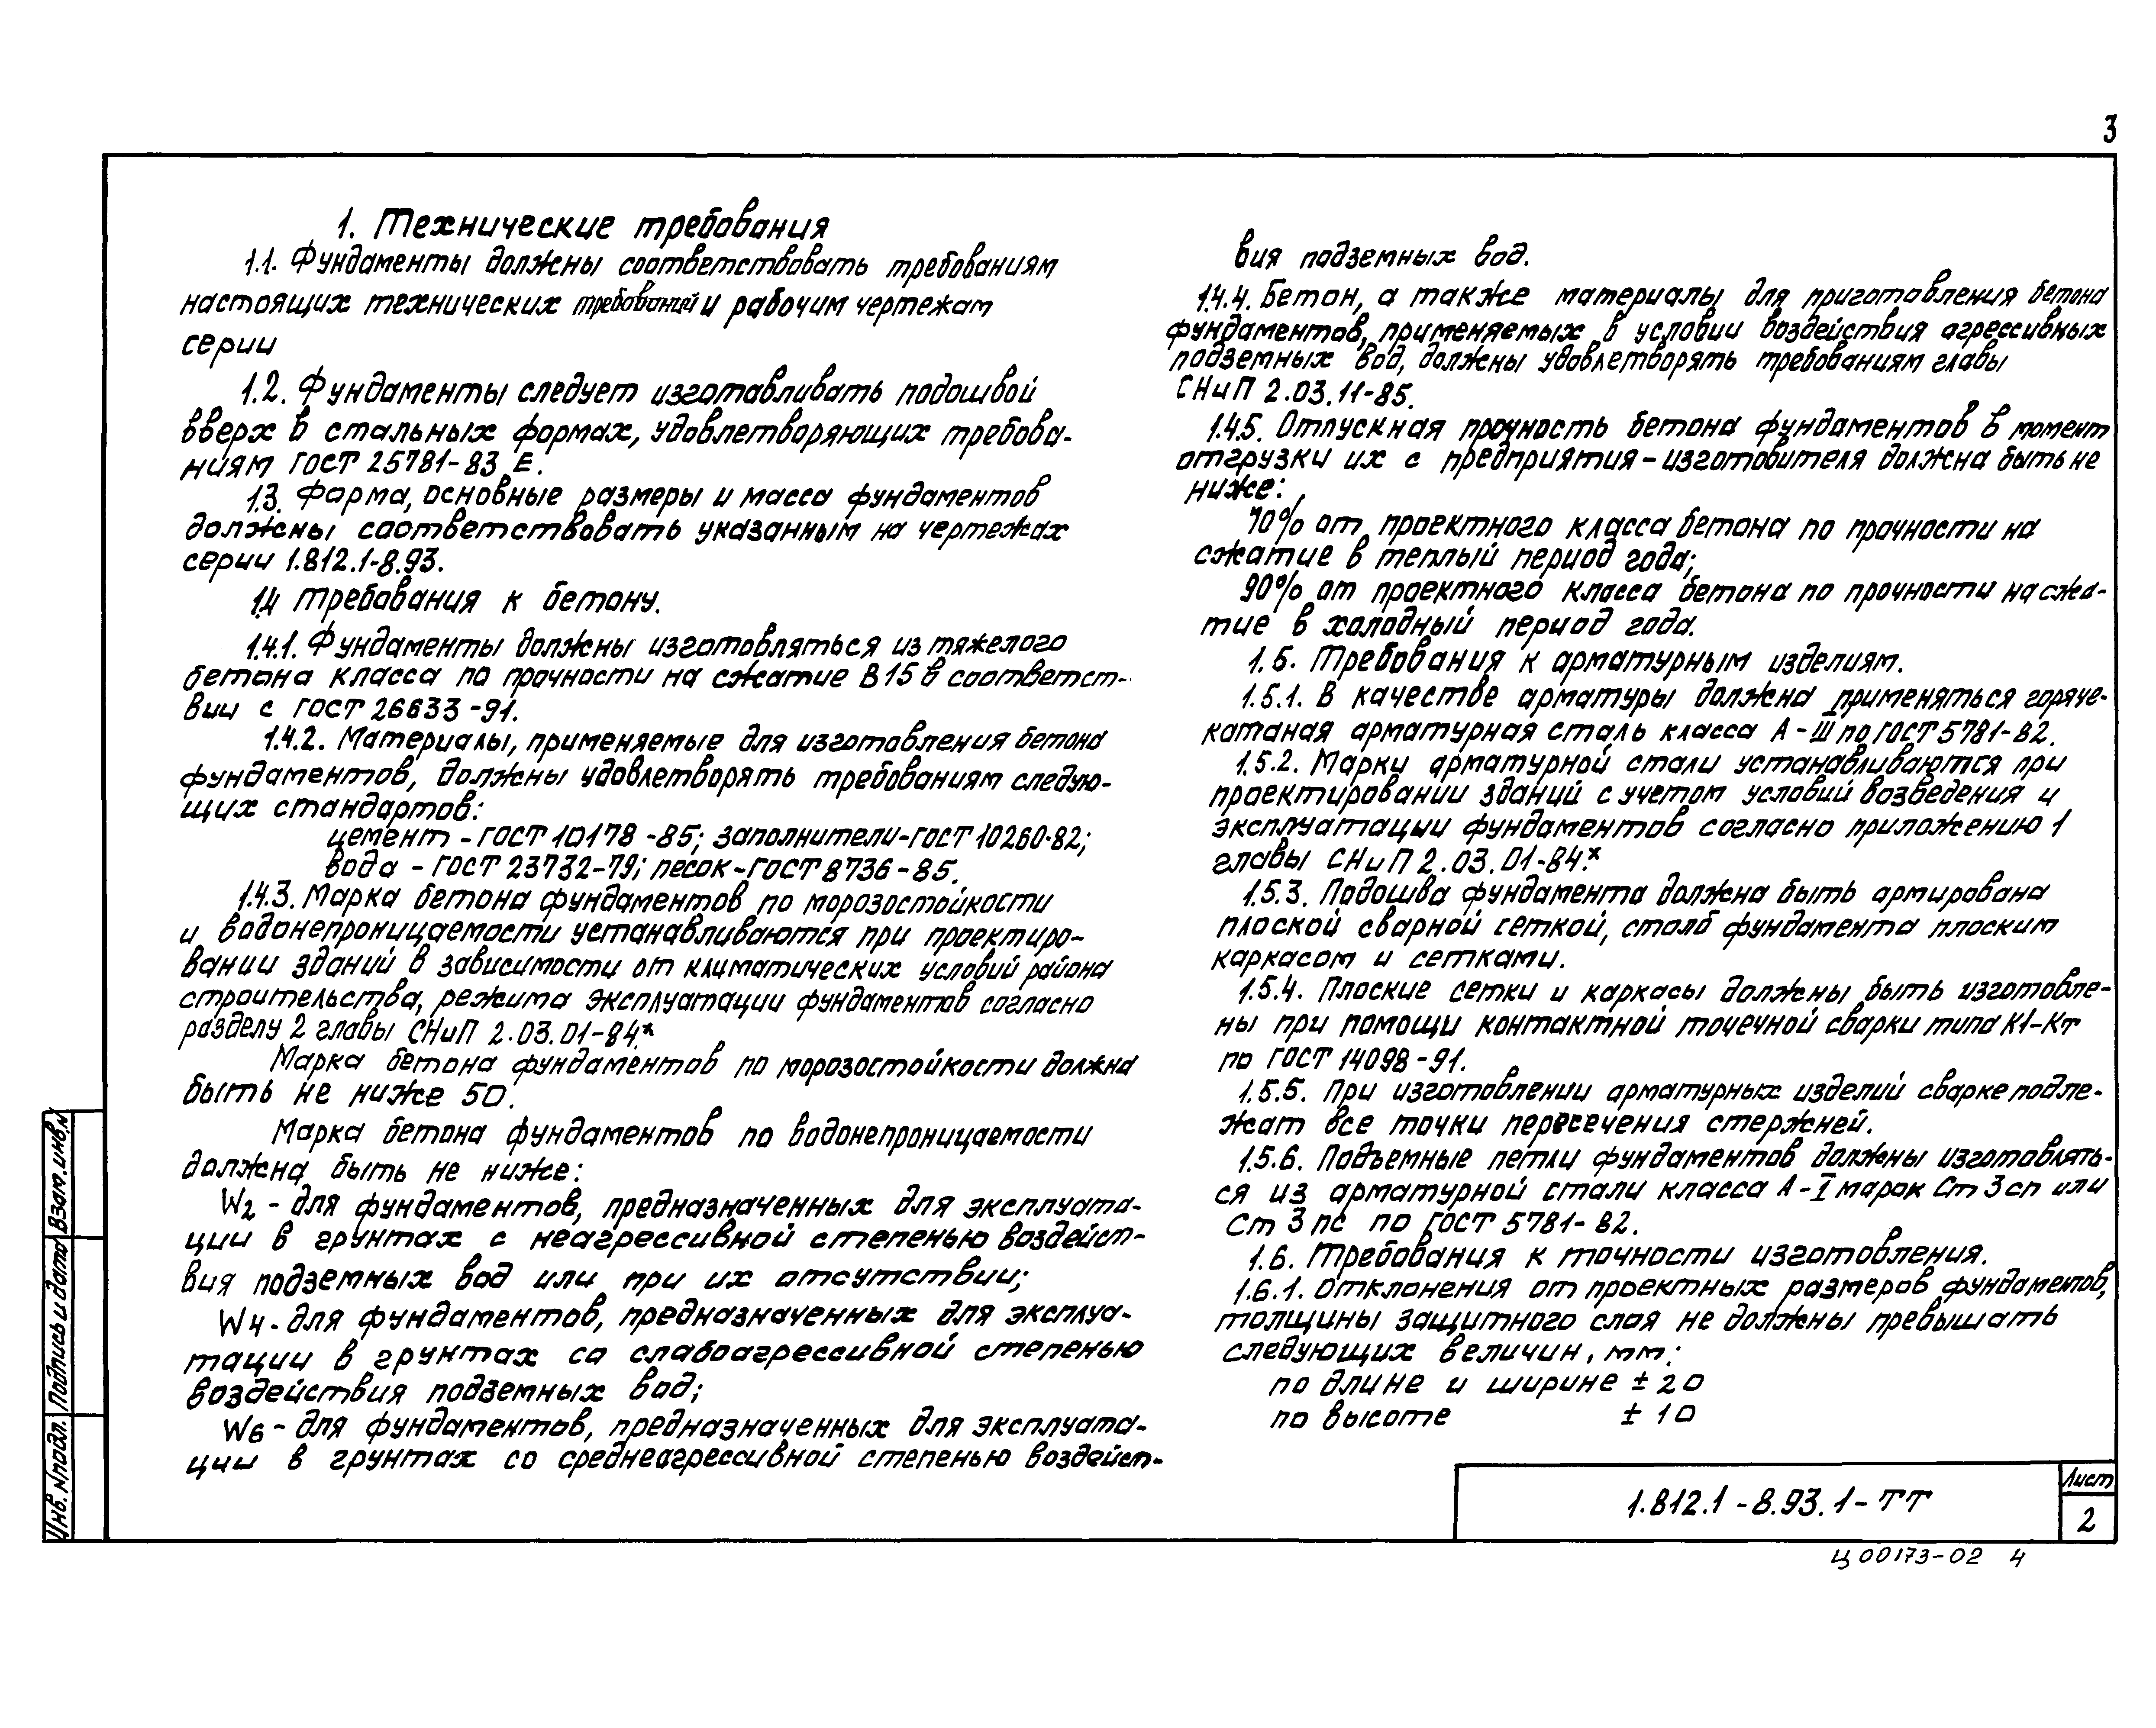 3
1. Технические требования
1.1. Фундаменты должны соответствовать требованиям
настоящих технических требований и рабочим чертежам
серии
1.2. Фундаменты следует изготавливать подошвой
вверх в стальных формах, удовлетворяющих требова-
ниям ГОСТ 25781-83 Е.
1.3. Форма, основные размеры и масса фундаментов
должны соответствовать указанным на чертежах
серии 1.812.1-8.93.
1.4 Требования к бетону.
1.4.1. Фундаменты должны изготовляться из тяжелого
бетона класса по прочности на сжатие В15 в соответст-
вии с ГОСТ 26633-91.
1.4.2. Материалы, применяемые для изготовления бетона
фундаментов, должны удовлетворять требованиям следую-
щих стандартов:
цемент - ГОСТ 10178-85; заполнители-ГОСТ 10260-82;
вода - ГОСТ 23732-79; песок-ГОСТ 8736-85.
1.4.3. Марка бетона фундаментов по морозостойкости
и водонепроницаемости устанавливаются при проектиро-
вании зданий в зависимости от климатических условий района
строительства, режима эксплуатации фундаментов согласно
разделу 2 главы СНиП 2.03.01-84*.
Марка бетона фундаментов по морозостойкости должна
быть не ниже 50.
Марка бетона фундаментов по водонепроницаемости
должна быть не ниже:
W2 - для фундаментов, предназначенных для эксплуата-
ции в грунтах с неагрессивной степенью воздейст-
вия подземных вод или при их отсутствии;
W4 - для фундаментов, предназначенных для эксплуа-
тации в грунтах со слабоагрессивной степенью
воздействия подземных вод;
W6 - для фундаментов, предназначенных для эксплуата-
ции в грунтах со среднеагрессивной степенью воздейст-
вия подземных вод.
1.4.4. Бетон, а также материалы для приготовления бетона
фундаментов, применяемых в условии воздействия агрессивных
подземных вод, должны удовлетворять требованиям главы
СНиП 2.03.11-85.
1.4.5. Отпускная прочность бетона фундаментов в момент
отгрузки их с предприятия-изготовителя должна быть не
ниже:
70% от проектного класса бетона по прочности на
сжатие в теплый период года;
90% от проектного класса бетона по прочности на сжа-
тие в холодный период года.
1.5. Требования к арматурным изделиям.
1.5.1. В качестве арматуры должна применяться горяче-
катаная арматурная сталь класса А-III по ГОСТ 5781-82.
1.5.2. Марки арматурной стали устанавливаются при
проектировании зданий с учетом условий возведения и
эксплуатации фундаментов согласно приложению 1
главы СНиП 2.03.01-84*.
1.5.3. Подошва фундамента должна быть армирована
плоской сварной сеткой, столб фундамента плоским
каркасом и сетками.
1.5.4. Плоские сетки и каркасы должны быть изготовле-
ны при помощи контактной точечной сварки типа К1-Кт
по ГОСТ 14098-91.
1.5.5. При изготовлении арматурных изделий сварке подле-
жат все точки пересечения стержней.
1.5.6. Подъемные петли фундаментов должны изготовлять-
ся из арматурной стали класса А-I марок Ст 3 сп или
Ст 3 пс по ГОСТ 5781-82.
1.6. Требования к точности изготовления.
1.6.1. Отклонения от проектных размеров фундаментов,
толщины защитного слоя не должны превышать
следующих величин, мм:
по длине и ширине ± 20
по высоте ± 10
Инв. № подл. Подпись и дата Взам. инв. №
1.812.1-8.93.1-ТТ
Лист
2
Ц00173-02 4